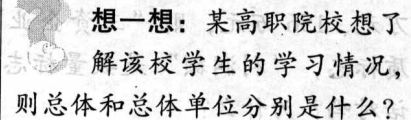 想一想：某高职院校想了
解该校学生的学习情况，
则总体和总体单位分别是什么？